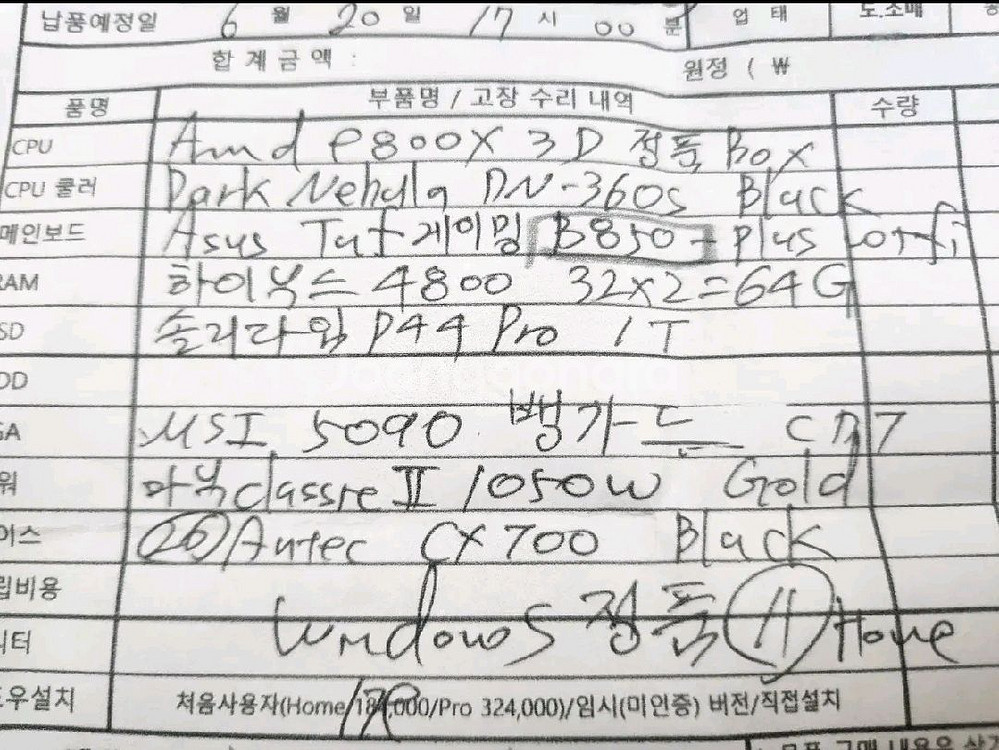 납품예정일 6 월 20 일 17 시 00 분 업 태 도.소매
합 계 금 액 : 원정 ( ₩
품명 부품명 / 고장 수리 내역 수량
CPU Amd 9800X 3D 정품 Box
CPU 쿨러 Dark Nebula DN-360S Black
메인보드 Asus Tuf 게이밍 B850-Plus
RAM 하이닉스 4800 32x2=64G
SD 솔리다임 P44 Pro 1T
DD
GA MSI 5090 뱅가드
워 마닉 classic II 1050W Gold
이스 26 Antec CX700 Black
립비용
니터 Windows 정품 11 Home
우설치 처음사용자(Home 17 ,000/Pro 324,000)/임시(미인증) 버전/직접설치